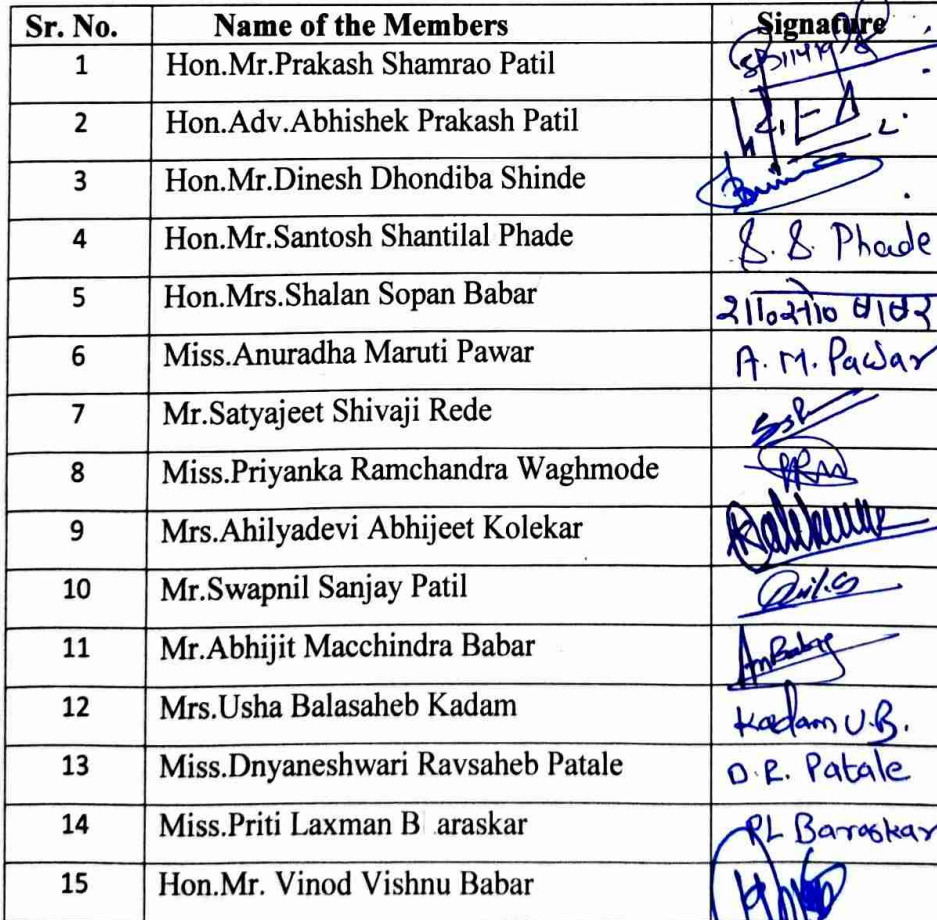 Sr. No. Name of the Members Signature
1 Hon.Mr.Prakash Shamrao Patil
2 Hon.Adv.Abhishek Prakash Patil
3 Hon.Mr.Dinesh Dhondiba Shinde
4 Hon.Mr.Santosh Shantilal Phade S. S. Phade
5 Hon.Mrs.Shalan Sopan Babar शा०सो० बाबर
6 Miss.Anuradha Maruti Pawar A. M. Pawar
7 Mr.Satyajeet Shivaji Rede
8 Miss.Priyanka Ramchandra Waghmode
9 Mrs.Ahilyadevi Abhijeet Kolekar
10 Mr.Swapnil Sanjay Patil
11 Mr.Abhijit Macchindra Babar AmBabar
12 Mrs.Usha Balasaheb Kadam Kadam U.B.
13 Miss.Dnyaneshwari Ravsaheb Patale D.R. Patale
14 Miss.Priti Laxman B araskar PL Baraskar
15 Hon.Mr. Vinod Vishnu Babar